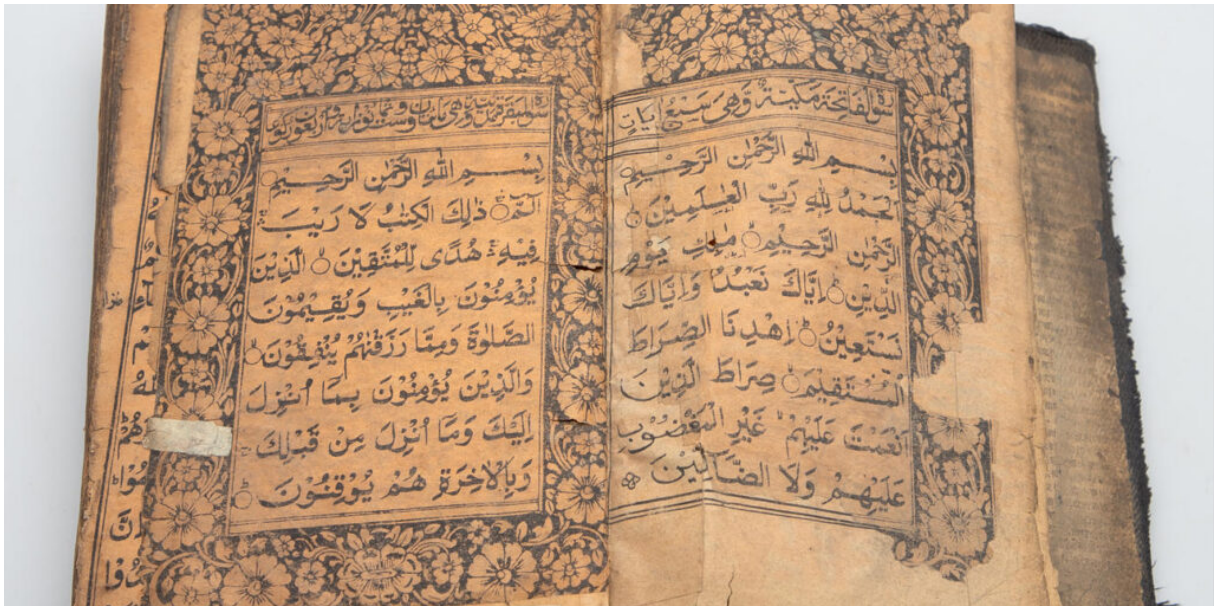 سورة الفاتحة مكية وهي سبع ايات
بِسْمِ اللهِ الرَّحْمٰنِ الرَّحِيْمِ
اَلْحَمْدُ لِلّٰهِ رَبِّ الْعٰلَمِيْنَ
الرَّحْمٰنِ الرَّحِيْمِ مٰلِكِ يَوْمِ
الدِّيْنِ اِيَّاكَ نَعْبُدُ وَاِيَّاكَ
نَسْتَعِيْنُ اِهْدِنَا الصِّرَاطَ
الْمُسْتَقِيْمَ صِرَاطَ الَّذِيْنَ
اَنْعَمْتَ عَلَيْهِمْ غَيْرِ الْمَغْضُوْبِ
عَلَيْهِمْ وَلَا الضَّآلِّيْنَ
بِسْمِ اللهِ الرَّحْمٰنِ الرَّحِيْمِ
الٓمّٓ ذٰلِكَ الْكِتٰبُ لَا رَيْبَ
فِيْهِ هُدًى لِّلْمُتَّقِيْنَ الَّذِيْنَ
يُؤْمِنُوْنَ بِالْغَيْبِ وَيُقِيْمُوْنَ
الصَّلٰوةَ وَمِمَّا رَزَقْنٰهُمْ يُنْفِقُوْنَ
وَالَّذِيْنَ يُؤْمِنُوْنَ بِمَآ اُنْزِلَ
اِلَيْكَ وَمَآ اُنْزِلَ مِنْ قَبْلِكَ
وَبِالْاٰخِرَةِ هُمْ يُوْقِنُوْنَ